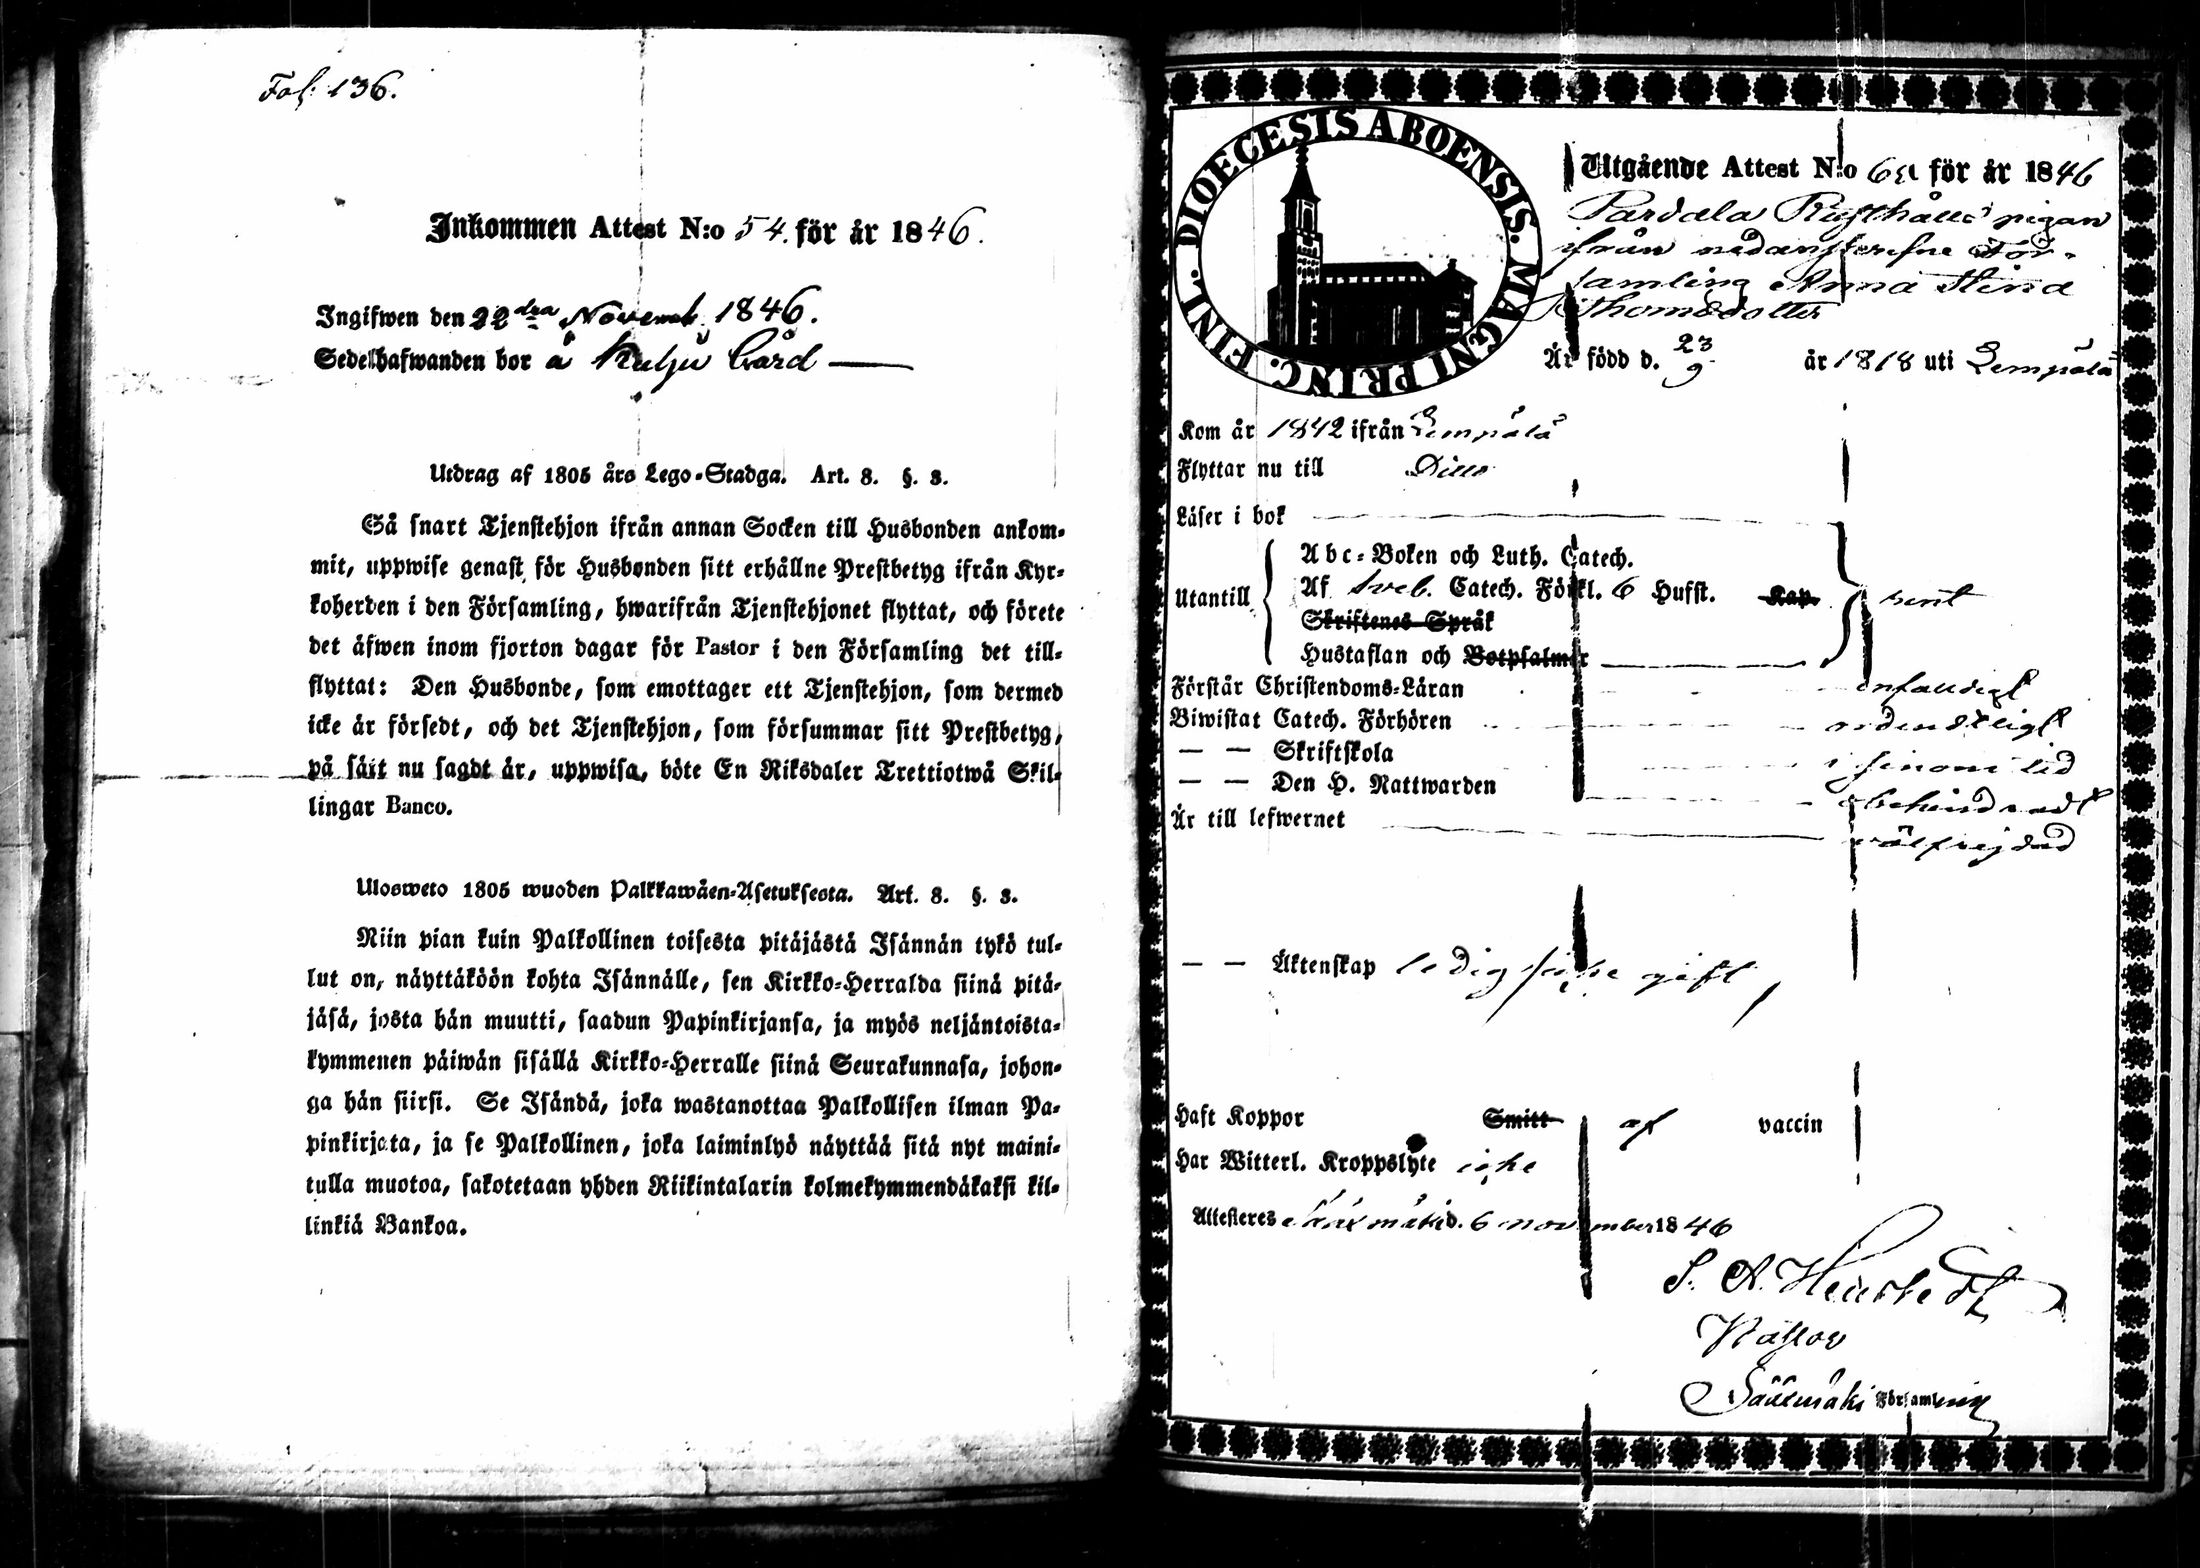 Fol: 136.
Inkommen Attest N:o 54. för år 1846.
Ingifwen den 22dra Novemb. 1846.
Sedelhafwanden bor å Kulju Gård
Utdrag af 1805 års Lego-Stadga. Art. 8. §. 3.
Så snart Tjenstehjon ifrån annan Socken till Husbonden ankom-
mit, uppwise genast för Husbonden sitt erhållne Prestbetyg ifrån Kyr-
koherden i den Församling, hwarifrån Tjenstehjonet flyttat, och förete
det äfwen inom fjorton dagar för Pastor i den Församling det till-
flyttat: Den Husbonde, som emottager ett Tjenstehjon, som dermed
icke är försedt, och det Tjenstehjon, som försummar sitt Prestbetyg,
på sätt nu sagdt är, uppwisa, böte En Riksdaler Trettiotwå Skil-
lingar Banco.
Ulosweto 1805 wuoden Palkkawäen-Asetuksesta. Art. 8. §. 3.
Niin pian kuin Palkollinen toisesta pitäjästä Isännän tykö tul-
lut on, näyttäköön kohta Isännälle, sen Kirkko-Herralda siinä pitä-
jäsä, josta hän muutti, saadun Papinkirjansa, ja myös neljäntoista-
kymmenen päiwän sisällä Kirkko-Herralle siinä Seurakunnasa, johon-
ga hän siirsi. Se Isändä, joka wastanottaa Palkollisen ilman Pa-
pinkirjata, ja se Palkollinen, joka laiminlyö näyttää sitä nyt maini-
tulla muotoa, sakotetaan yhden Riikintalarin kolmekymmendäkaksi kil-
linkiä Bankoa.
DIOECESIS ABOENSIS. MAGNI PRINC. FINL.
Utgående Attest N:o för år 1846
Pardala Rusthålls pigan
ifrån nedanskrefne För-
samling Anna Stina
Thomsdotter
Är född d. 23/9 år 1818 uti Lempälä
Kom år 1842 ifrån Lempälä
Flyttar nu till Ditto
Läser i bok
Abc-Boken och Luth. Catech.
Utantill Af Sveb. Catech. Förkl. 6 Hufst. Kap. rent
Skriftenes Språk
Hustaflan och Botpsalmer
Förstår Christendoms-Läran enfaldigt
Biwistat Catech. Förhören ordentligt
— — Skriftskola i sinom tid
— — Den H. Nattwarden obehindradt
Är till lefwernet välfrejdad
— — Äktenskap ledig icke gift
Haft Koppor Smitt af vaccin
Har Witterl. Kroppslyte icke
Attesteres Sääxmäki d. 6 november 1846
Pastor
Sääxmäki Församling